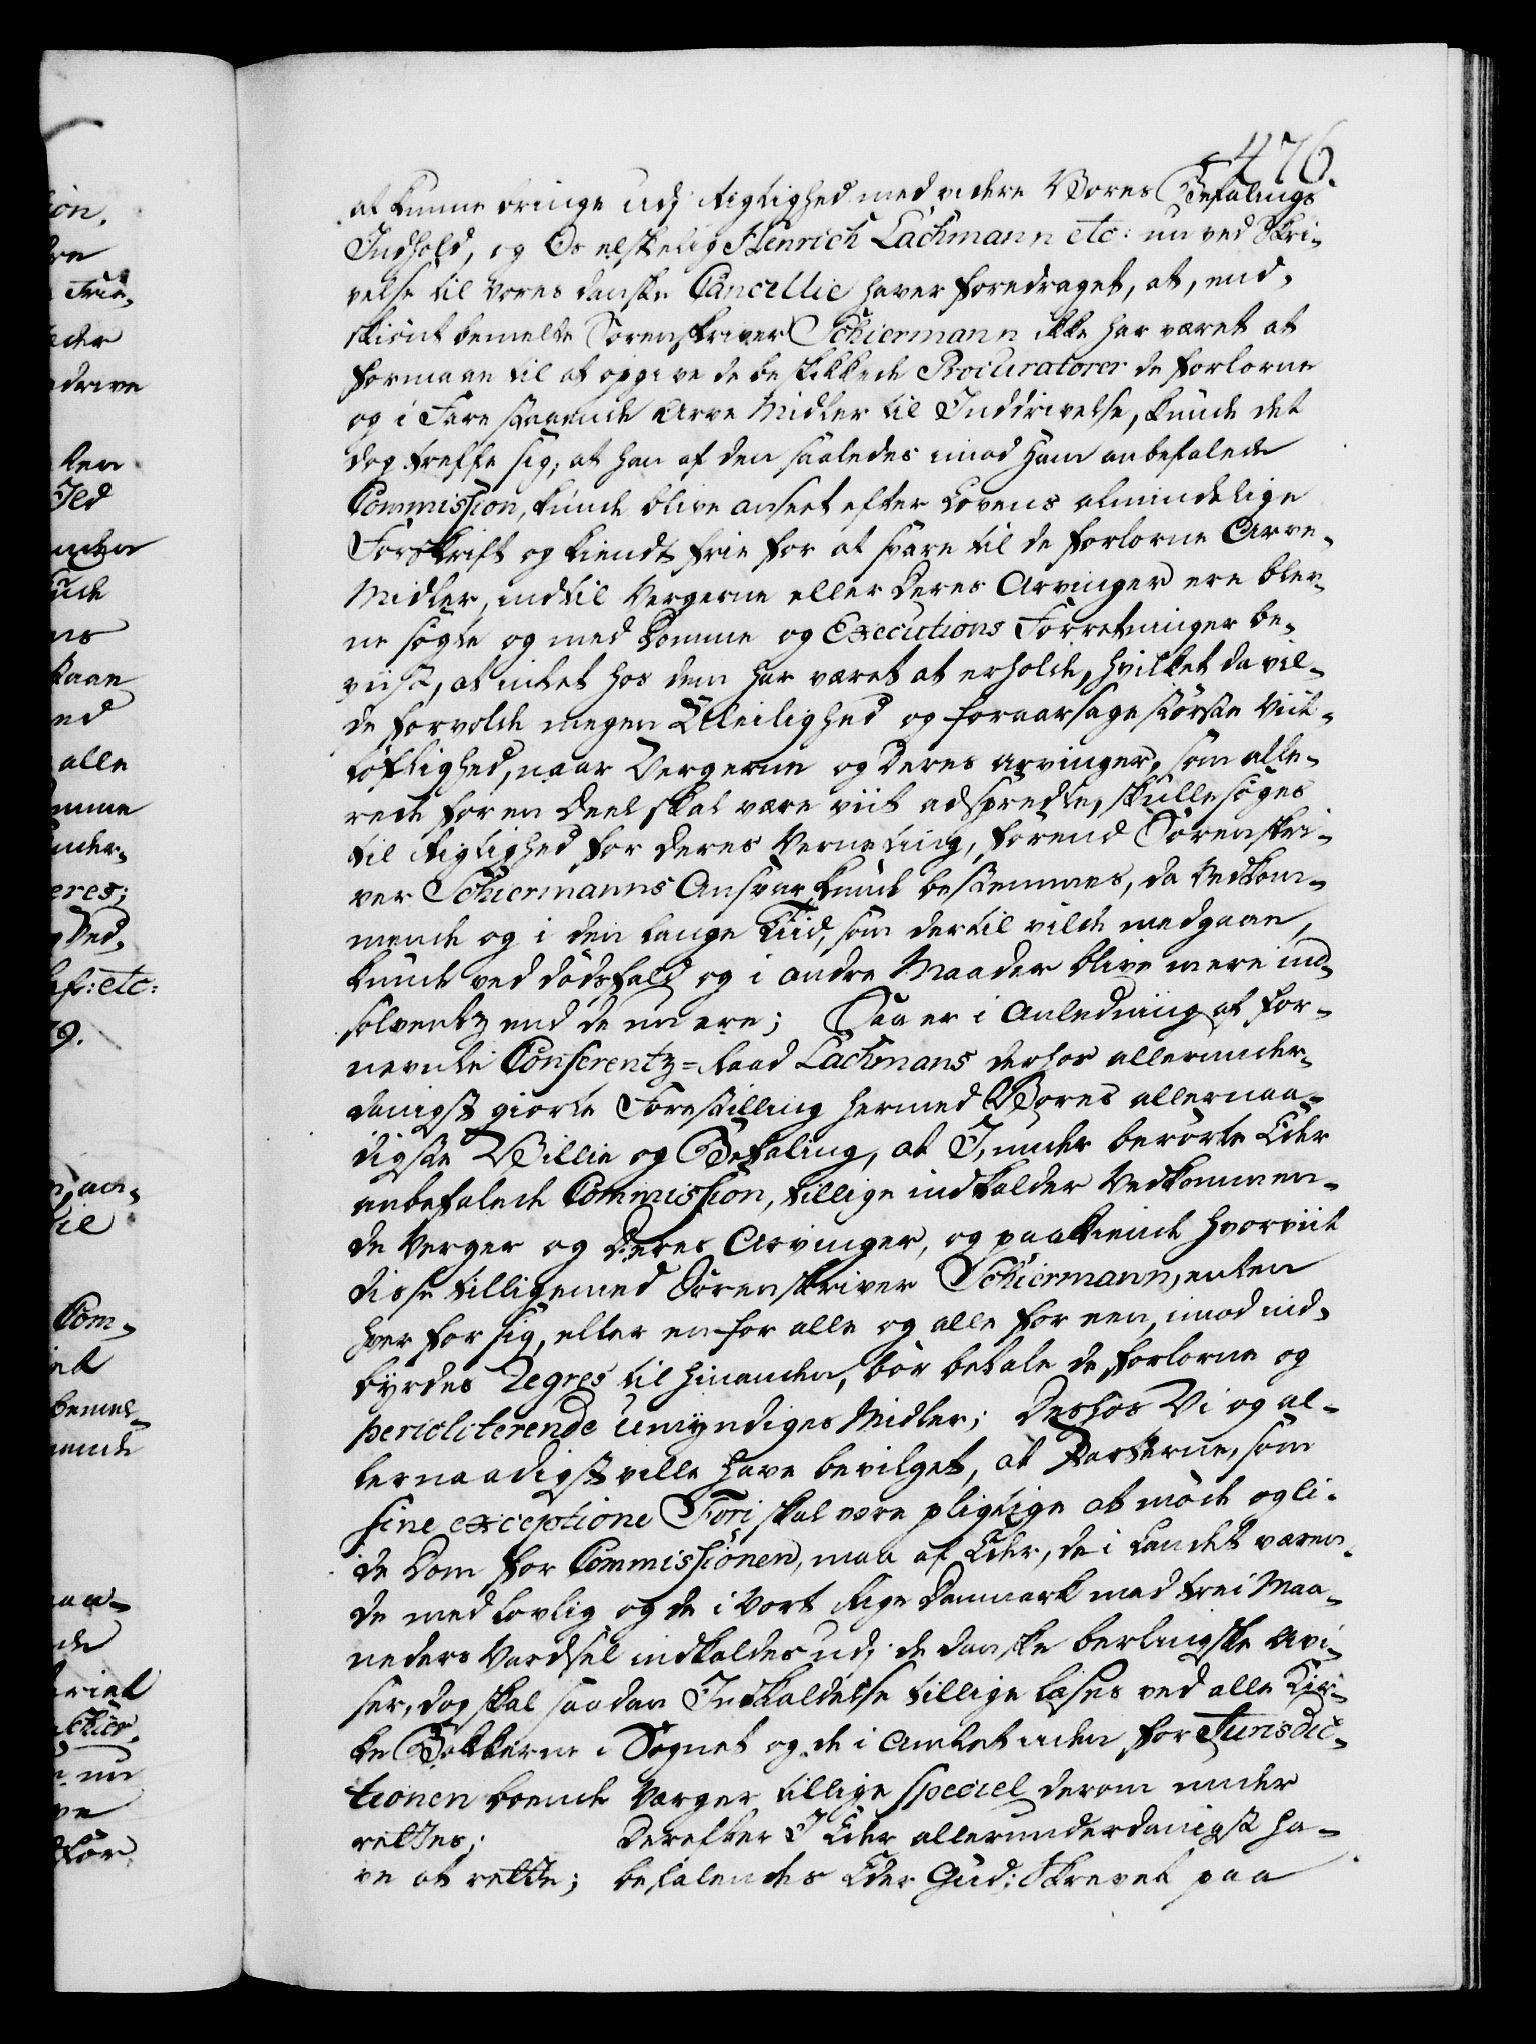 476.
at kunne bringe udj Rigtighed med videre Vores Befalings
Indhold, og Os elskelig Henrich Lachmann etc: nu ved Skri-
velse til vores danske Cancellie haver foredraget, at, end-
skiönt bemelte Sorenskriver Schiermann ikke har været at
formaae til at opgive de beskikkede Procuratorer de forlorne
og i Fare staaende Arve Midler til Inddrivelse, kunde det
dog treffe sig, at han af den saaledes imod ham anbefalede
Commission, kunde blive anseet efter Lovens almindelige
Forskrift og kiendt frie for at svare til de forlorne Arve-
Midler, indtil Vergerne eller deres Arvinger ere blev-
ne sögte og med Domme og Executions Forretninger be-
viist, at intet hos dem har været at erholde, hvilket da vil-
de forvolde megen Uleilighed og foraarsage störste Viit-
löftighed, naar Vergerne og deres Arvinger, som alle-
rede for en Deel skal være viit adspredte, skulle söges
til Rigtighed for deres Verneting, forend Sorenskri-
ver Schiermanns Ansvar kunde bestemmes, da Vedkom-
mende og i den lange Tiid, som dertil vilde medgaae,
kunde ved dödsfald og i andre Maader blive mere ind-
solventz end de nu ere; Saa er i Anledning af for-
nevnte Conferentz-Raad Lachmans derhos allerunder-
danigst giorte Forestilling hermed Vores allernaa-
digste Villie og Befaling, at I, under berörte Eder
anbefalede Commission, tillige indkalder Vedkommen-
de Verger og deres Arvinger, og paakiende hvorviit
disse tilligemed Sorenskriver Schiermann, enten
hver for sig, eller en for alle og alle for een, imod ind-
byrdes Regres til hinanden, bör betale de forlorne og
pericliterende Umyndiges Midler; Deshos Vi og al-
lernaadigst ville have bevilget, at Parterne, som
sine exceptione Fori skal være pligtige at möde og li-
de Dom for Commissionen, maa af Eder, de i Landet væren-
de med lovlig og de i Vort Rige Danmark med trei Maa-
neders Vardsel indkaldes udj de danske berlingske Avi-
ser, dog skal saadan Indkaldelse tillige læses ved alle Kir-
ke Bakkerne i Sognet og de i Amtet uden for Jurisdic-
tionen boende Værger tillige speciel derom under
rettes; Derefter I Eder allerunderdanigst ha-
ve at rette; befalendes Eder Gud; Skrevet paa